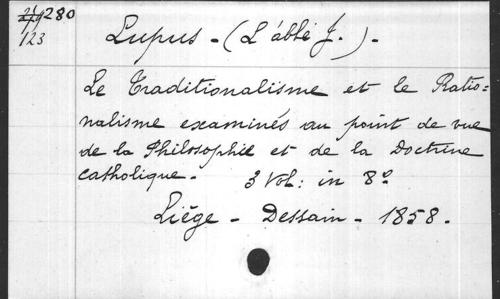 280
123
Lupus - (L'abbé J.) -
Le Traditionalisme et le Ratio=
nalisme examinés au point de vue
de la Philosophie et de la Doctrine
catholique - 3 Vol: in 8º
Liège - Dessain - 1858 -